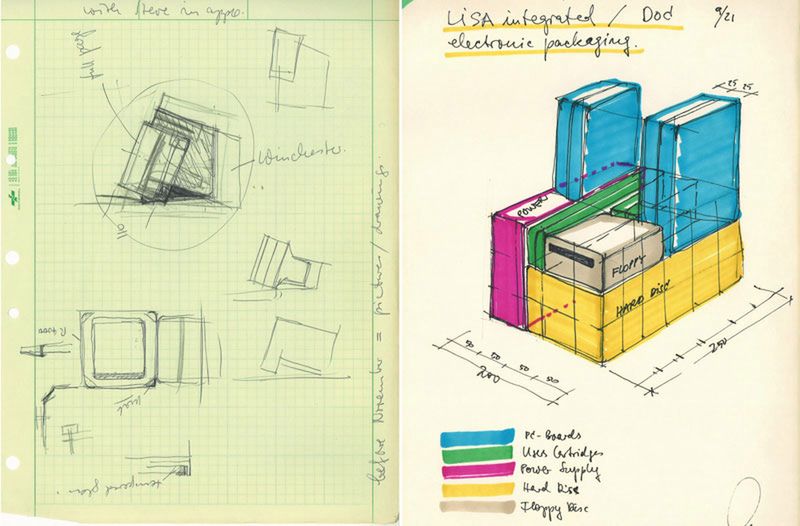 with Steve in apple.
full page
Winchester.
011
before November = pictures / drawings.
LISA integrated / Dod
9/21
electronic packaging.
25 25
POWER
FLOPPY
HARD DISC
50 50 50 50
200
250
PC-Boards
User Cartridges
Power Supply
Hard Disc
Floppy Disc